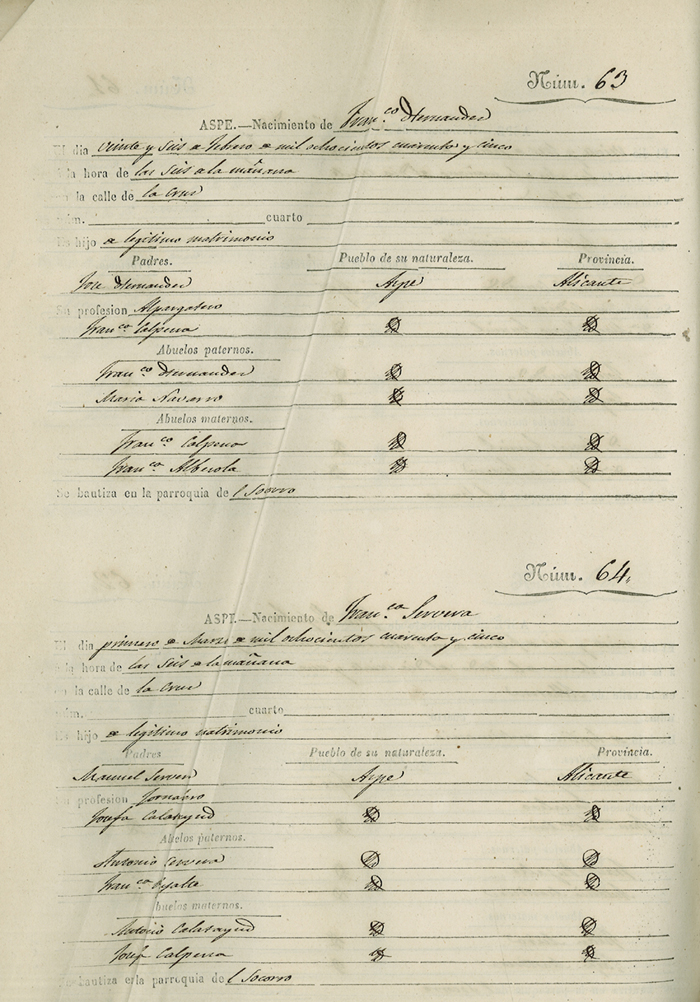 Núm. 63
ASPE.—Nacimiento de Fran.co Hernandez
El dia veinte y seis de febrero de mil ochocientos cuarenta y cinco
a la hora de las seis de la mañana
en la calle de la Cruz
núm. cuarto
Es hijo de legitimo matrimonio
Padres. Pueblo de su naturaleza. Provincia.
Jose Hernandez Aspe Alicante
Su profesion Alpargatero
Fran.ca Calpena
Abuelos paternos.
Fran.co Hernandez
Maria Navarro
Abuelos maternos.
Fran.co Calpena
Fran.ca Alberola
Se bautiza en la parroquia de l Socorro
Núm. 64.
ASPE.—Nacimiento de Fran.ca Servera
El dia primero de Marzo de mil ochocientos cuarenta y cinco
a la hora de las seis de la mañana
en la calle de la Cruz
núm. cuarto
Es hijo de legitimo matrimonio
Padres Pueblo de su naturaleza. Provincia.
Manuel Aspe Alicante
Su profesion Jornalero
Josefa Calatayud
Abuelos paternos.
Antonio Cervera
Fran.ca
Abuelos maternos.
Antonio Calatayud
Josefa Calpena
Se bautiza en la parroquia de l Socorro